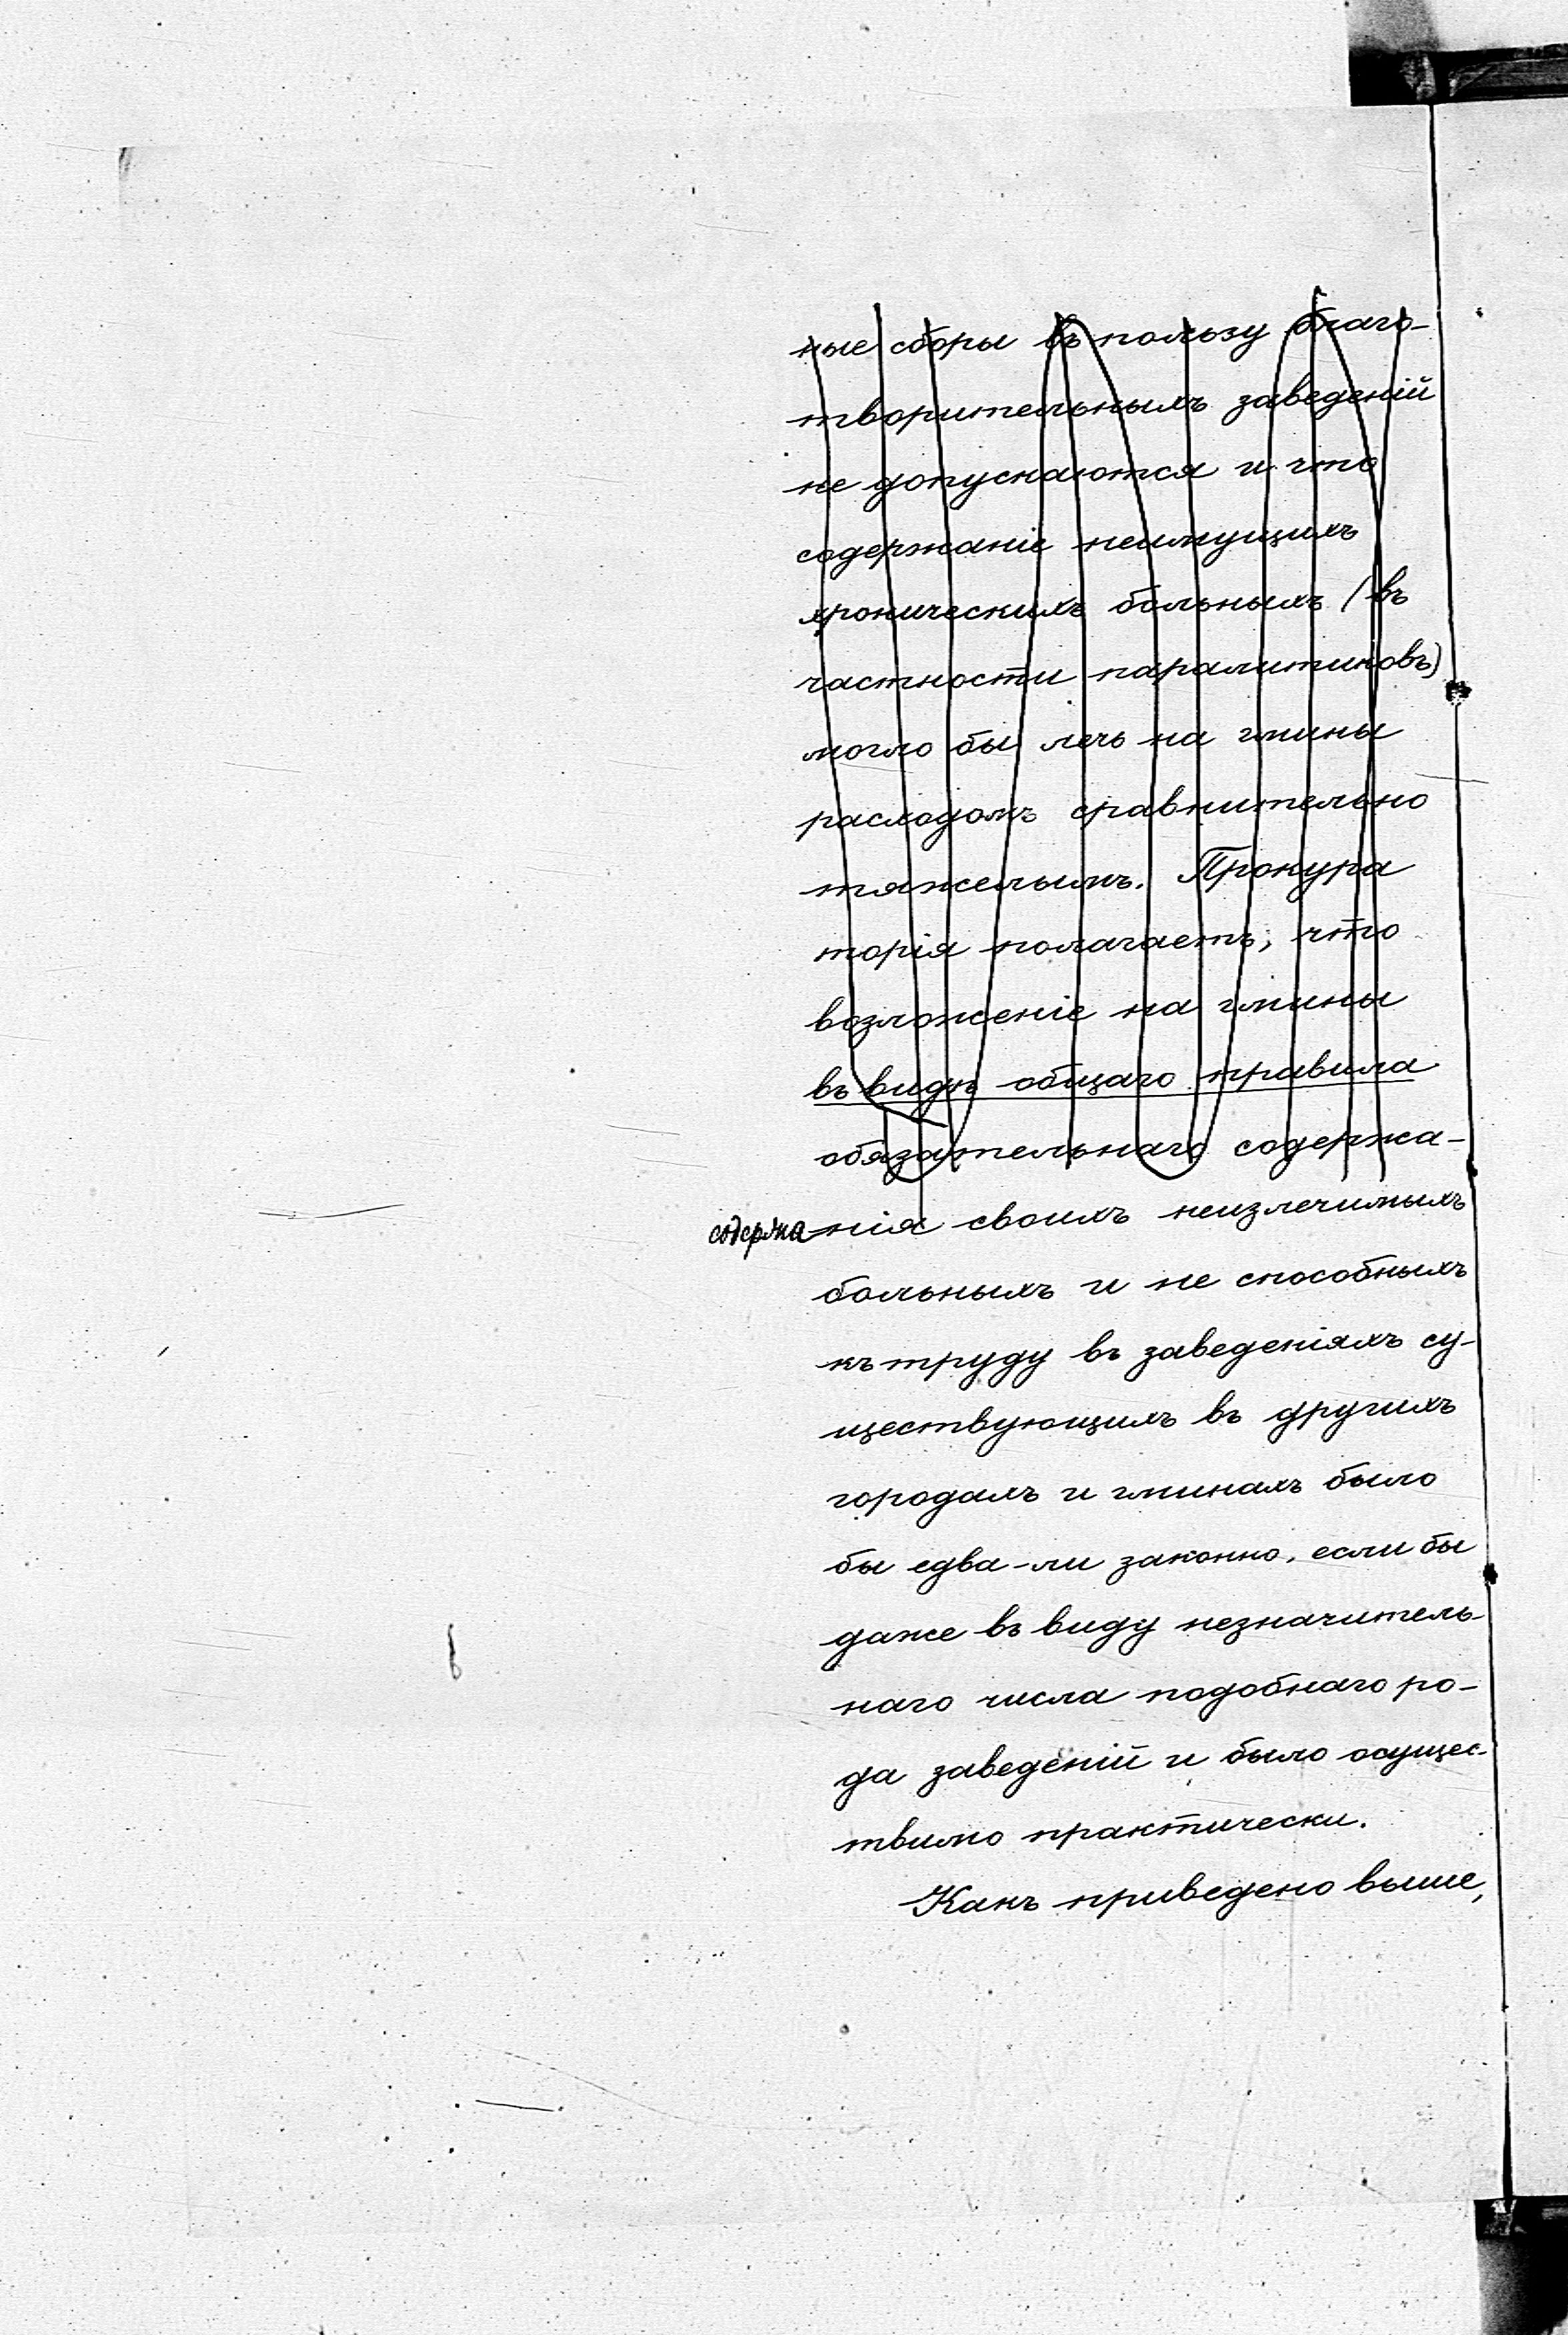 ные сборы въ пользу благо-
творительныхъ заведеній
не допускаются и что
содержаніе неимущихъ
хроническихъ больныхъ (въ
частности паралитиковъ)
могло бы лечь на гмины
расходомъ сравнительно
тяжелымъ. Прокура
торія полагаетъ, что
возложеніе на гмины
въ видѣ общаго правила
обязательнаго содержа-
содержанія своихъ неизлечимыхъ
больныхъ и не способныхъ
къ труду въ заведеніяхъ су-
ществующихъ въ другихъ
городахъ и гминахъ было
бы едва-ли законно, если бы
даже въ виду незначитель-
наго числа подобнаго ро-
да заведеній и было осущес-
твимо практически.
Какъ приведено выше,